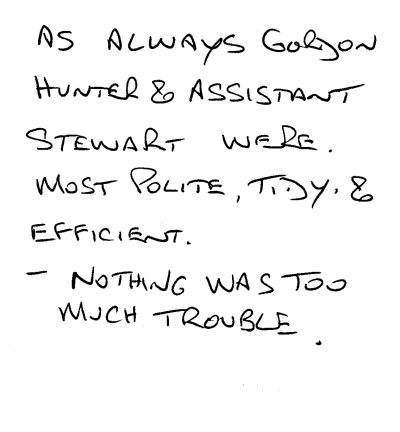 AS ALWAYS GORDON
HUNTER & ASSISTANT
STEWART WERE.
MOST POLITE, TIDY, &
EFFICIENT.
- NOTHING WAS TOO
MUCH TROUBLE.